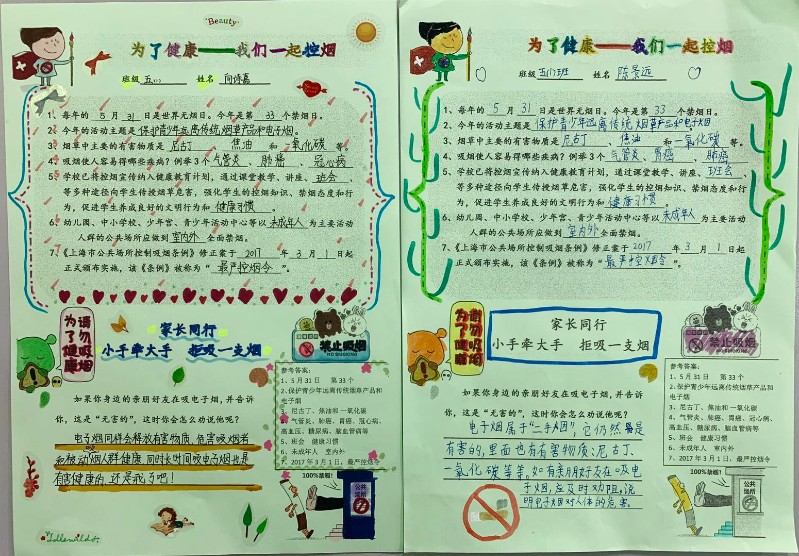 Beauty
为了健康——我们一起控烟
班级 五(1) 姓名
1、每年的 5 月 31 日是世界无烟日。今年是第 33 个禁烟日。
2、今年的活动主题是 保护青少年远离传统烟草产品和电子烟。
3、烟草中主要的有害物质是 尼古丁 、 焦油 和 一氧化碳 等。
4、吸烟使人容易得哪些疾病?例举3个 气管炎、肺癌、冠心病
5、学校已将控烟宣传纳入健康教育计划,通过课堂教学、讲座、班会
等多种途径向学生传授烟草危害,强化学生的控烟知识、禁烟态度和行
为,促进学生养成良好的文明行为和 健康习惯 。
6、幼儿园、中小学校、少年宫、青少年活动中心等以 未成年人 为主要活动
人群的公共场所应做到 室内外 全面禁烟。
7、《上海市公共场所控制吸烟条例》修正案于 2017 年 3 月 1 日起
正式颁布实施,该《条例》被称为“ 最严控烟令 ”。
请勿吸烟
为了健康
家长同行
小手牵大手 拒吸一支烟
禁止吸烟
NO SMOKING
如果你身边的亲朋好友在吸电子烟,并告诉
你,这是“无害的”,这时你会怎么劝说他呢?
电子烟同样会释放有害物质,危害吸烟者
和被动烟人群健康,同时长时间吸电子烟也是
有害健康的,还是戒了吧!
参考答案:
1、5月31日 第33个
2、保护青少年远离传统烟草产品和
电子烟
3、尼古丁、焦油和一氧化碳
4、气管炎、肺癌、胃癌、冠心病、
高血压、糖尿病、脑血管病等
5、班会 健康习惯
6、未成年人 室内外
7、2017年3月1日,最严控烟令
100%禁烟!
公共场所
Idlewild
为了健康——我们一起控烟
班级 五(1)班 姓名 陈景远
1、每年的 5 月 31 日是世界无烟日。今年是第 33 个禁烟日。
2、今年的活动主题是 保护青少年远离传统烟草产品和电子烟
3、烟草中主要的有害物质是 尼古丁 、 焦油 和 一氧化碳 等。
4、吸烟使人容易得哪些疾病?例举3个 气管炎、胃癌、肺癌
5、学校已将控烟宣传纳入健康教育计划,通过课堂教学、讲座、班会
等多种途径向学生传授烟草危害,强化学生的控烟知识、禁烟态度和行
为,促进学生养成良好的文明行为和 健康习惯 。
6、幼儿园、中小学校、少年宫、青少年活动中心等以 未成年人 为主要活动
人群的公共场所应做到 室内外 全面禁烟。
7、《上海市公共场所控制吸烟条例》修正案于 2017 年 3 月 1 日起
正式颁布实施,该《条例》被称为“ 最严控烟令 ”。
请勿吸烟
为了健康
家长同行
小手牵大手 拒吸一支烟
禁止吸烟
NO SMOKING
如果你身边的亲朋好友在吸电子烟,并告诉
你,这是“无害的”,这时你会怎么劝说他呢?
电子烟属于“二手烟”,它仍然是
有害的,里面也有有害物质:尼古丁、
一氧化碳等等。如有亲朋好友在吸电
子烟,应及时劝阻,说
明电子烟对人体的危害。
参考答案:
1、5月31日 第33个
2、保护青少年远离传统烟草产品和
电子烟
3、尼古丁、焦油和一氧化碳
4、气管炎、肺癌、胃癌、冠心病、
高血压、糖尿病、脑血管病等
5、班会 健康习惯
6、未成年人 室内外
7、2017年3月1日,最严控烟令
100%禁烟!
公共场所